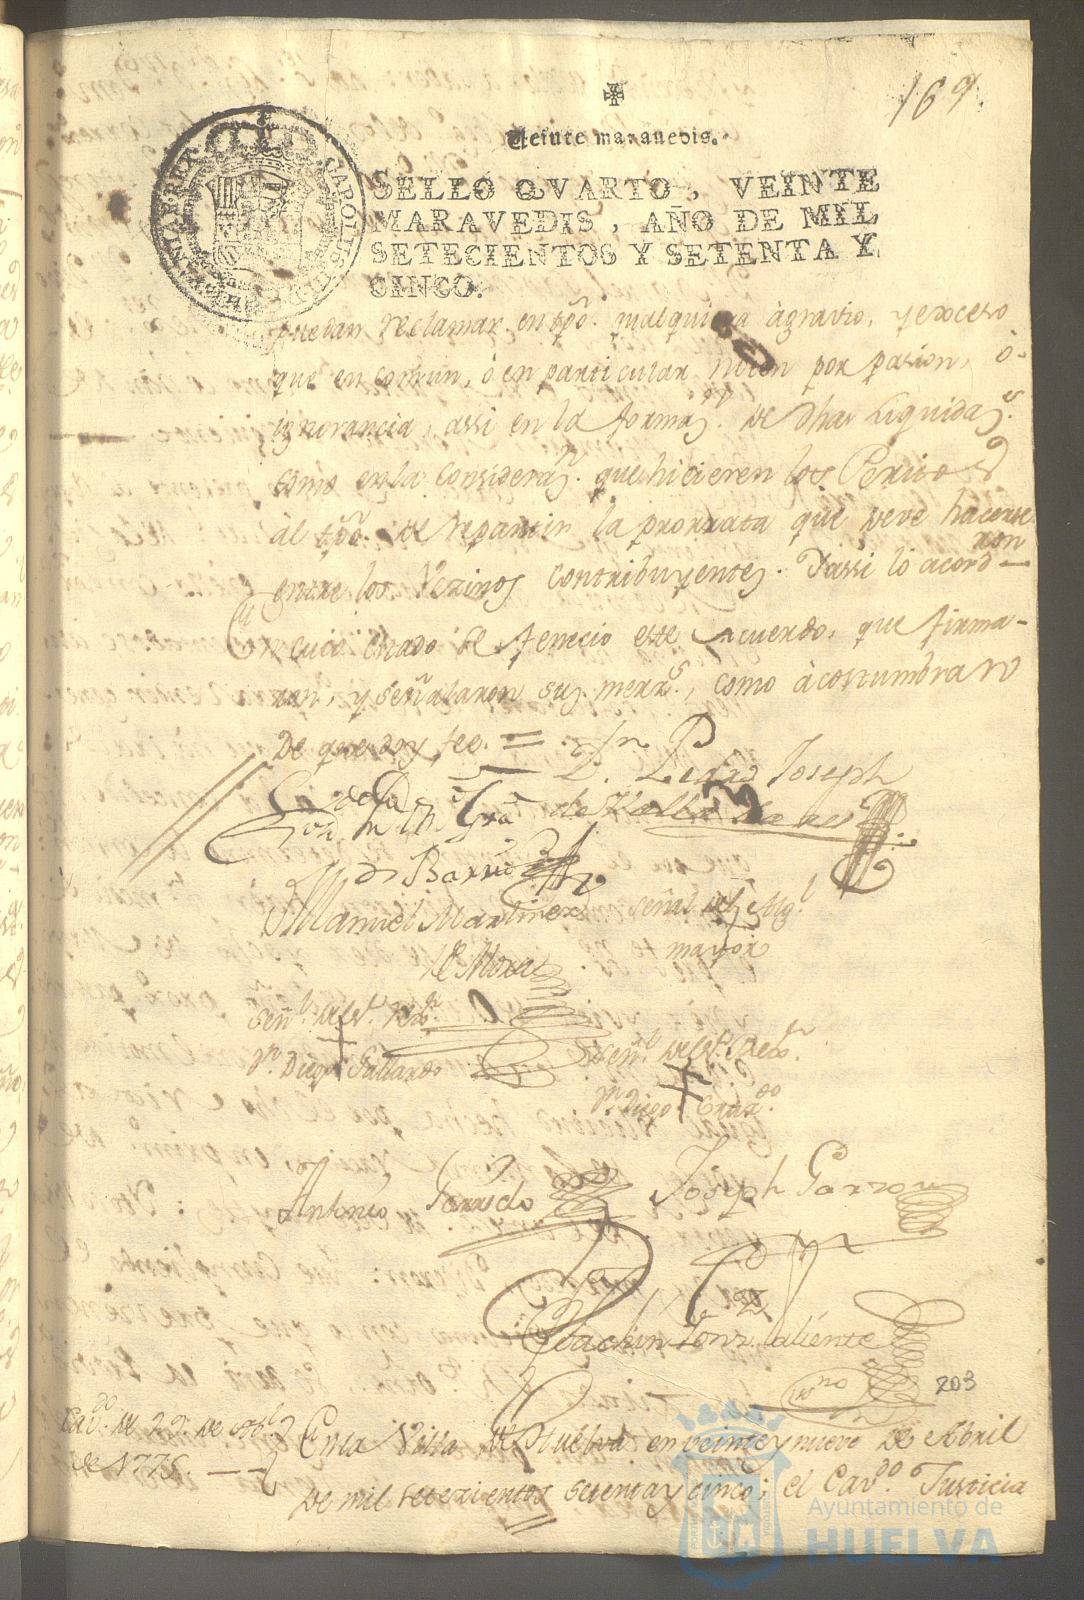 169
Veinte maravedis.
SELLO QVARTO, VEINTE
MARAVEDIS, AÑO DE MIL
SETECIENTOS Y SETENTA Y
CINCO.
puedan reclamar en tpõ. qualquiera àgravio, y exceso
que en comun, ò en particular noten por pasion, ò
ignorancia, assi en la forma de dhas Liquidas.
como en la considerazn. que hicieren los Peritos
al tpõ. de repartir la prorrata que deve hacerse
entre los Vezinos contribuyentes. Y assi lo acordaron
En cuio estado se fenecio este acuerdo, que firma-
ran, y señalaron sus merzs., como àcostumbran
De que doy fee. =
Dn. Pedro Joseph
de Valladares
de Barrio
Manuel Martinez
de Mora
Señal del Algl.
mayor
Señl. del Sr. Rexor.
Dn. Diego Gallardo
Señl. del Sr. Rexor.
Dn. Diego
Antonio Garrido
Joseph Garzon
Joachin Gonz. Caliente
203
Cavdo. de 29. de Abrl.
de 1775.
En la Villa de Huelva en veinte y nueve de Abril
de mil setezientos setenta y cinco; el Cavdo. Justicia
Ayuntamiento de
HUELVA